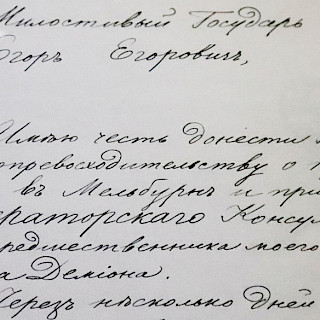 Милостивый Государь
Егоръ Егоровичъ,
Имѣю честь донести
превосходительству о
въ Мельбурнъ и при
раторскаго Консул
редшественника моего
а Деміона.
Черезъ нѣсколько дней